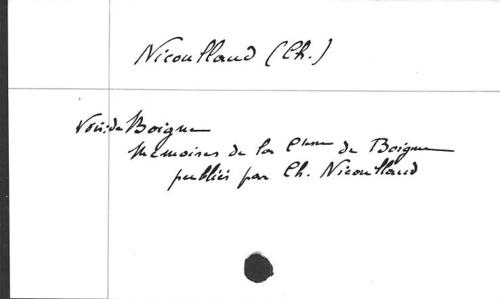 Nicoullaud (Ch.)
Voir: de Boigne
Mémoires de la Ctesse de Boigne
publiés par Ch. Nicoullaud